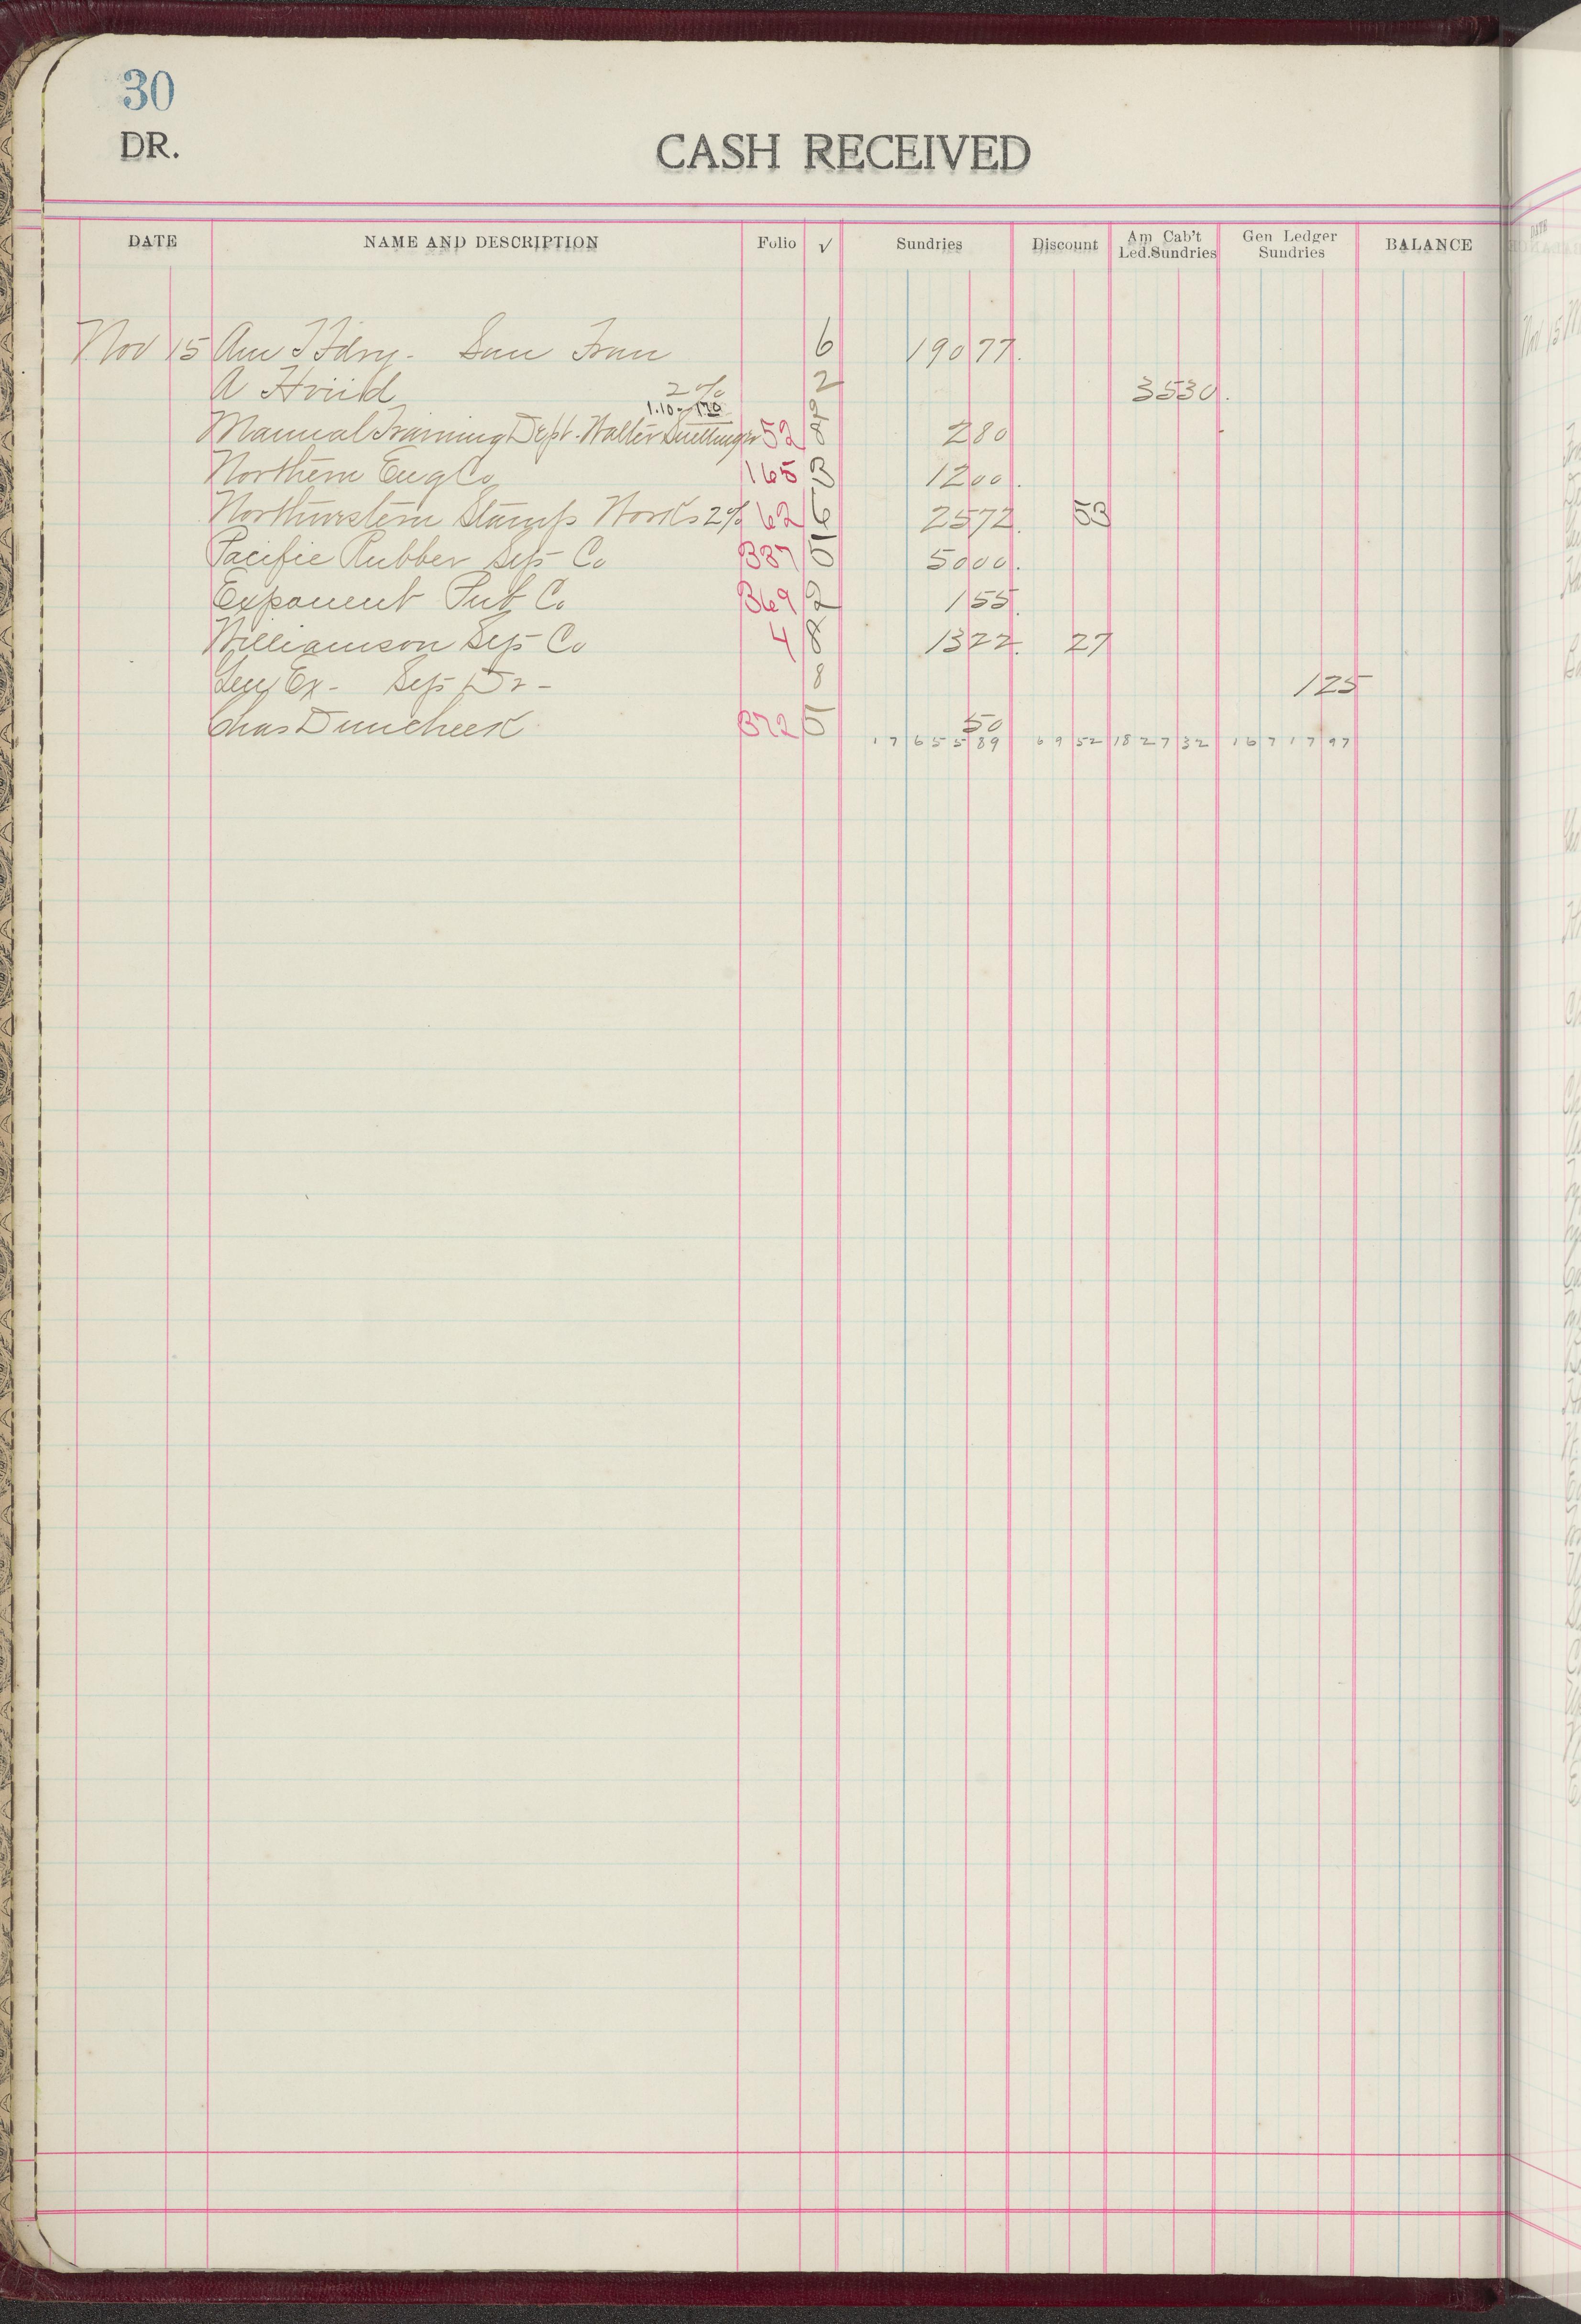 30
DR.
CASH RECEIVED
DATE NAME AND DESCRIPTION Folio √ Sundries Discount Am Cab't Led.Sundries Gen Ledger Sundries BALANCE
Nov 15 Am T Fdry - San Fran 6 190 77
A Hviid 2% 2 35 30
1.10 - 1.70 2
Manual Training Dept. Walter 52 8 2 80
Northern Eng Co 165 3 12 00
Northwestern Stamp Works 2% 62 6 25 72 53
Pacific Rubber Sup Co B37 5 50 00
Exponent Pub Co B69 2 1 55
Williamson Sup Co 4 8 13 22 27
Gen Ex - Sup Dr - 8 1 25
Chas Duncheek B72 5 50
17 655 89 69 52 1827 32 16717 97